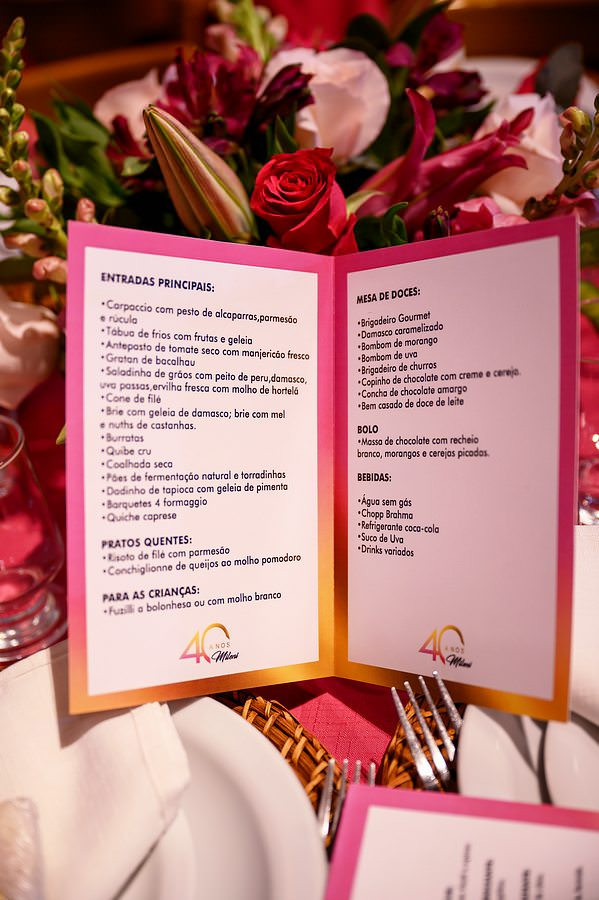 ENTRADAS PRINCIPAIS:
•Carpaccio com pesto de alcaparras,parmesão
e rúcula
•Tábua de frios com frutas e geleia
•Antepasto de tomate seco com manjericão fresco
•Gratan de bacalhau
•Saladinha de grãos com peito de peru,damasco,
uva passas,ervilha fresca com molho de hortelã
•Cone de filé
•Brie com geleia de damasco; brie com mel
e nuths de castanhas.
•Burratas
•Quibe cru
•Coalhada seca
•Pães de fermentação natural e torradinhas
•Dadinho de tapioca com geleia de pimenta
•Barquetes 4 formaggio
•Quiche caprese
PRATOS QUENTES:
•Risoto de filé com parmesão
•Conchiglionne de queijos ao molho pomodoro
PARA AS CRIANÇAS:
•Fuzilli a bolonhesa ou com molho branco
40 ANOS
MESA DE DOCES:
•Brigadeiro Gourmet
•Damasco caramelizado
•Bombom de morango
•Bombom de uva
•Brigadeiro de churros
•Copinho de chocolate com creme e cereja.
•Concha de chocolate amargo
•Bem casado de doce de leite
BOLO
•Massa de chocolate com recheio
branco, morangos e cerejas picadas.
BEBIDAS:
•Água sem gás
•Chopp Brahma
•Refrigerante coca-cola
•Suco de Uva
•Drinks variados
40 ANOS